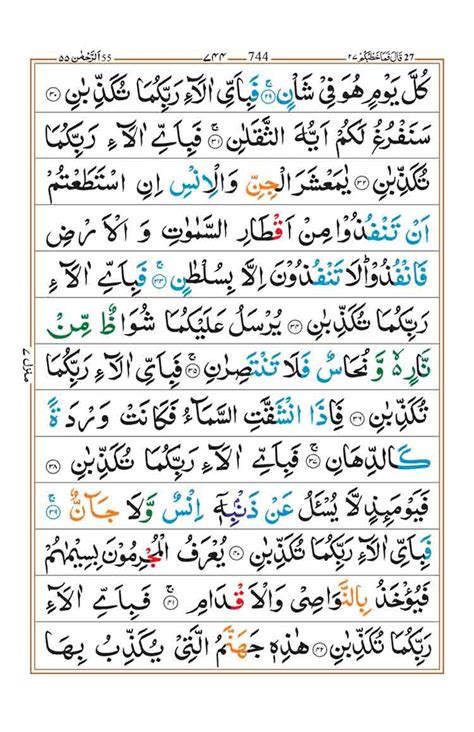 قَالَ فَمَا خَطْبُكُمْ ٢٧ 27 744 ٧٤٤ اَلرَّحْمٰن ٥٥ 55
كُلَّ يَوْمٍ هُوَ فِيْ شَاْنٍ ۚ ﴿٢٩﴾ فَبِاَيِّ اٰلَآءِ رَبِّكُمَا تُكَذِّبٰنِ ﴿٣٠﴾
سَنَفْرُغُ لَكُمْ اَيُّهَ الثَّقَلٰنِ ۚ ﴿٣١﴾ فَبِاَيِّ اٰلَآءِ رَبِّكُمَا
تُكَذِّبٰنِ ﴿٣٢﴾ يٰمَعْشَرَ الْجِنِّ وَالْاِنْسِ اِنِ اسْتَطَعْتُمْ
اَنْ تَنْفُذُوْا مِنْ اَقْطَارِ السَّمٰوٰتِ وَ الْاَرْضِ
فَانْفُذُوْا ؕ لَا تَنْفُذُوْنَ اِلَّا بِسُلْطٰنٍ ۚ ﴿٣٣﴾ فَبِاَيِّ اٰلَآءِ
رَبِّكُمَا تُكَذِّبٰنِ ﴿٣٤﴾ يُرْسَلُ عَلَيْكُمَا شُوَاظٌ مِّنْ
نَّارٍ ۙ۬ وَّ نُحَاسٌ فَلَا تَنْتَصِرٰنِ ۚ ﴿٣٥﴾ فَبِاَيِّ اٰلَآءِ رَبِّكُمَا
تُكَذِّبٰنِ ﴿٣٦﴾ فَاِذَا انْشَقَّتِ السَّمَآءُ فَكَانَتْ وَرْدَةً
كَالدِّهَانِ ۚ ﴿٣٧﴾ فَبِاَيِّ اٰلَآءِ رَبِّكُمَا تُكَذِّبٰنِ ﴿٣٨﴾
فَيَوْمَئِذٍ لَّا يُسْئَلُ عَنْ ذَنْۢبِهٖۤ اِنْسٌ وَّلَا جَآنٌّ ۚ ﴿٣٩﴾
فَبِاَيِّ اٰلَآءِ رَبِّكُمَا تُكَذِّبٰنِ ﴿٤٠﴾ يُعْرَفُ الْمُجْرِمُوْنَ بِسِيْمٰهُمْ
فَيُؤْخَذُ بِالنَّوَاصِيْ وَالْاَقْدَامِ ۚ ﴿٤١﴾ فَبِاَيِّ اٰلَآءِ
رَبِّكُمَا تُكَذِّبٰنِ ﴿٤٢﴾ هٰذِهٖ جَهَنَّمُ الَّتِيْ يُكَذِّبُ بِهَا
منزل ٧